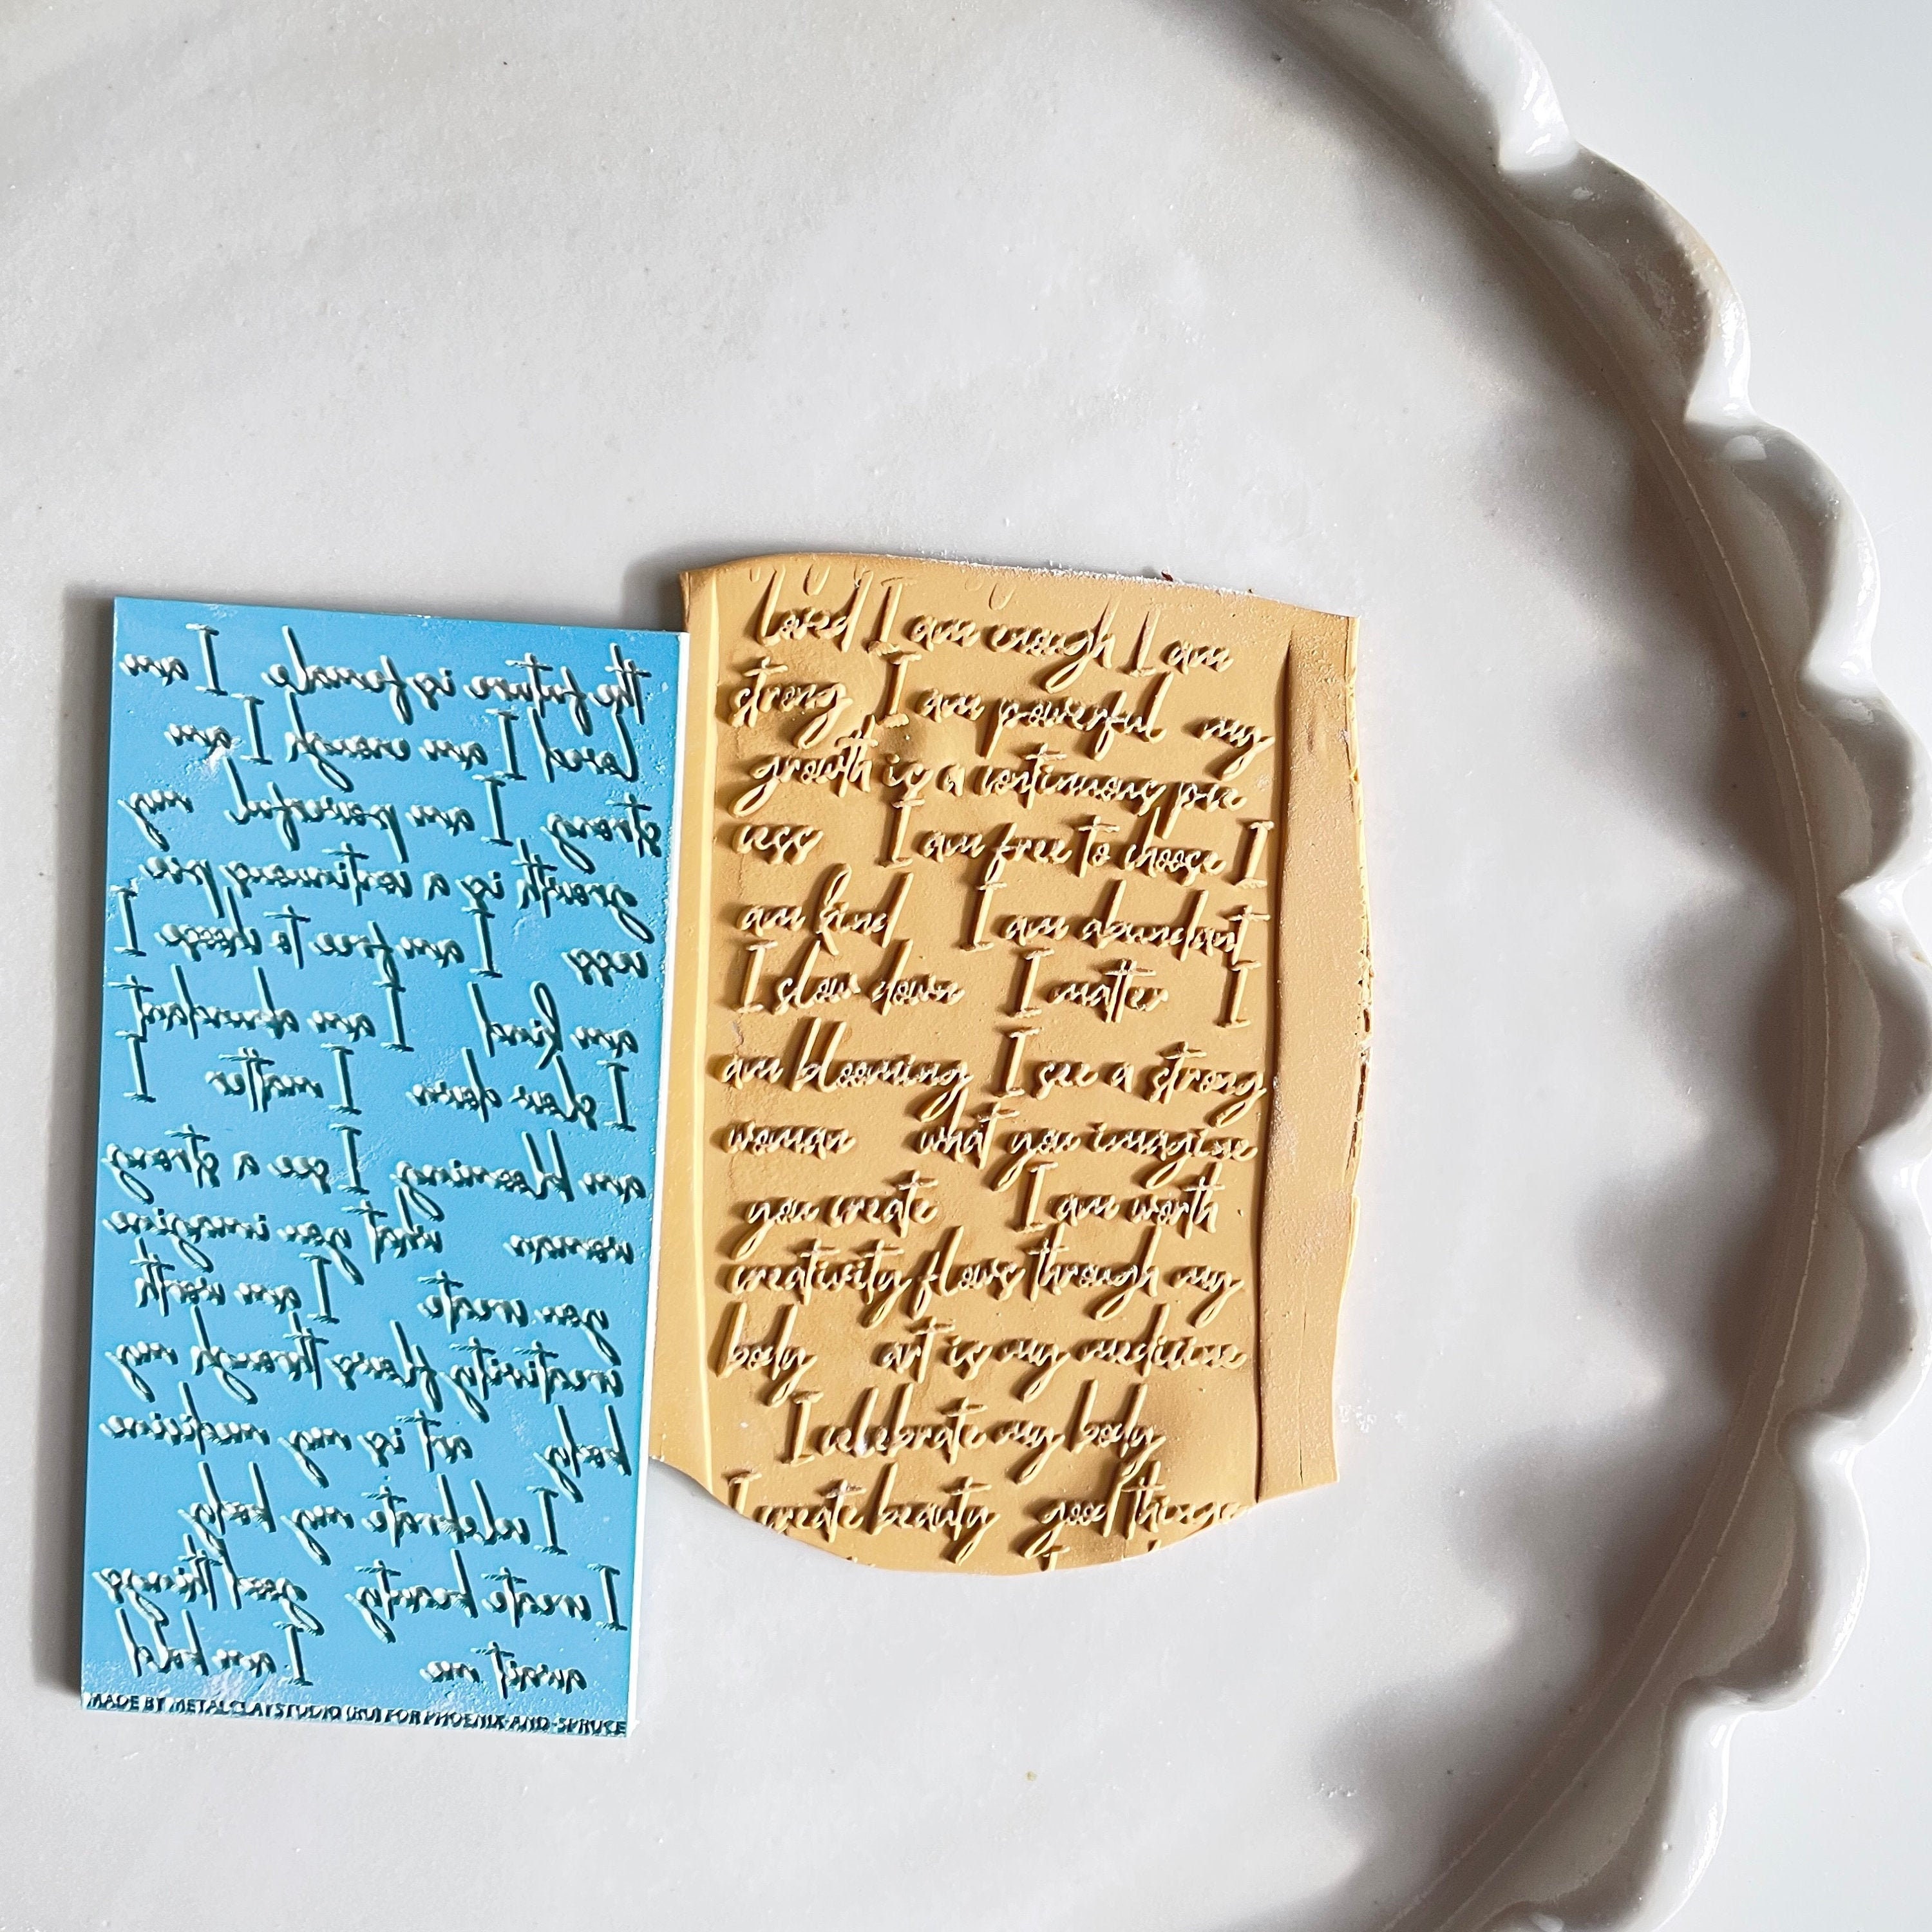 the future is female I am
loved I am enough I am
strong I am powerful my
growth is a continuous proc
ess I am free to choose I
am kind I am abundant
I slow down I matter I
am blooming I see a strong
woman what you imagine
you create I am worth
creativity flows through my
body art is my medicine
I celebrate my body
I create beauty good things
await me I am bold
MADE BY METALCLAYSTUDIO (RU) FOR PHOENIX-AND-SPRUCE
loved I am enough I am
strong I am powerful my
growth is a continuous proc
ess I am free to choose I
am kind I am abundant
I slow down I matter I
am blooming I see a strong
woman what you imagine
you create I am worth
creativity flows through my
body art is my medicine
I celebrate my body
I create beauty good things